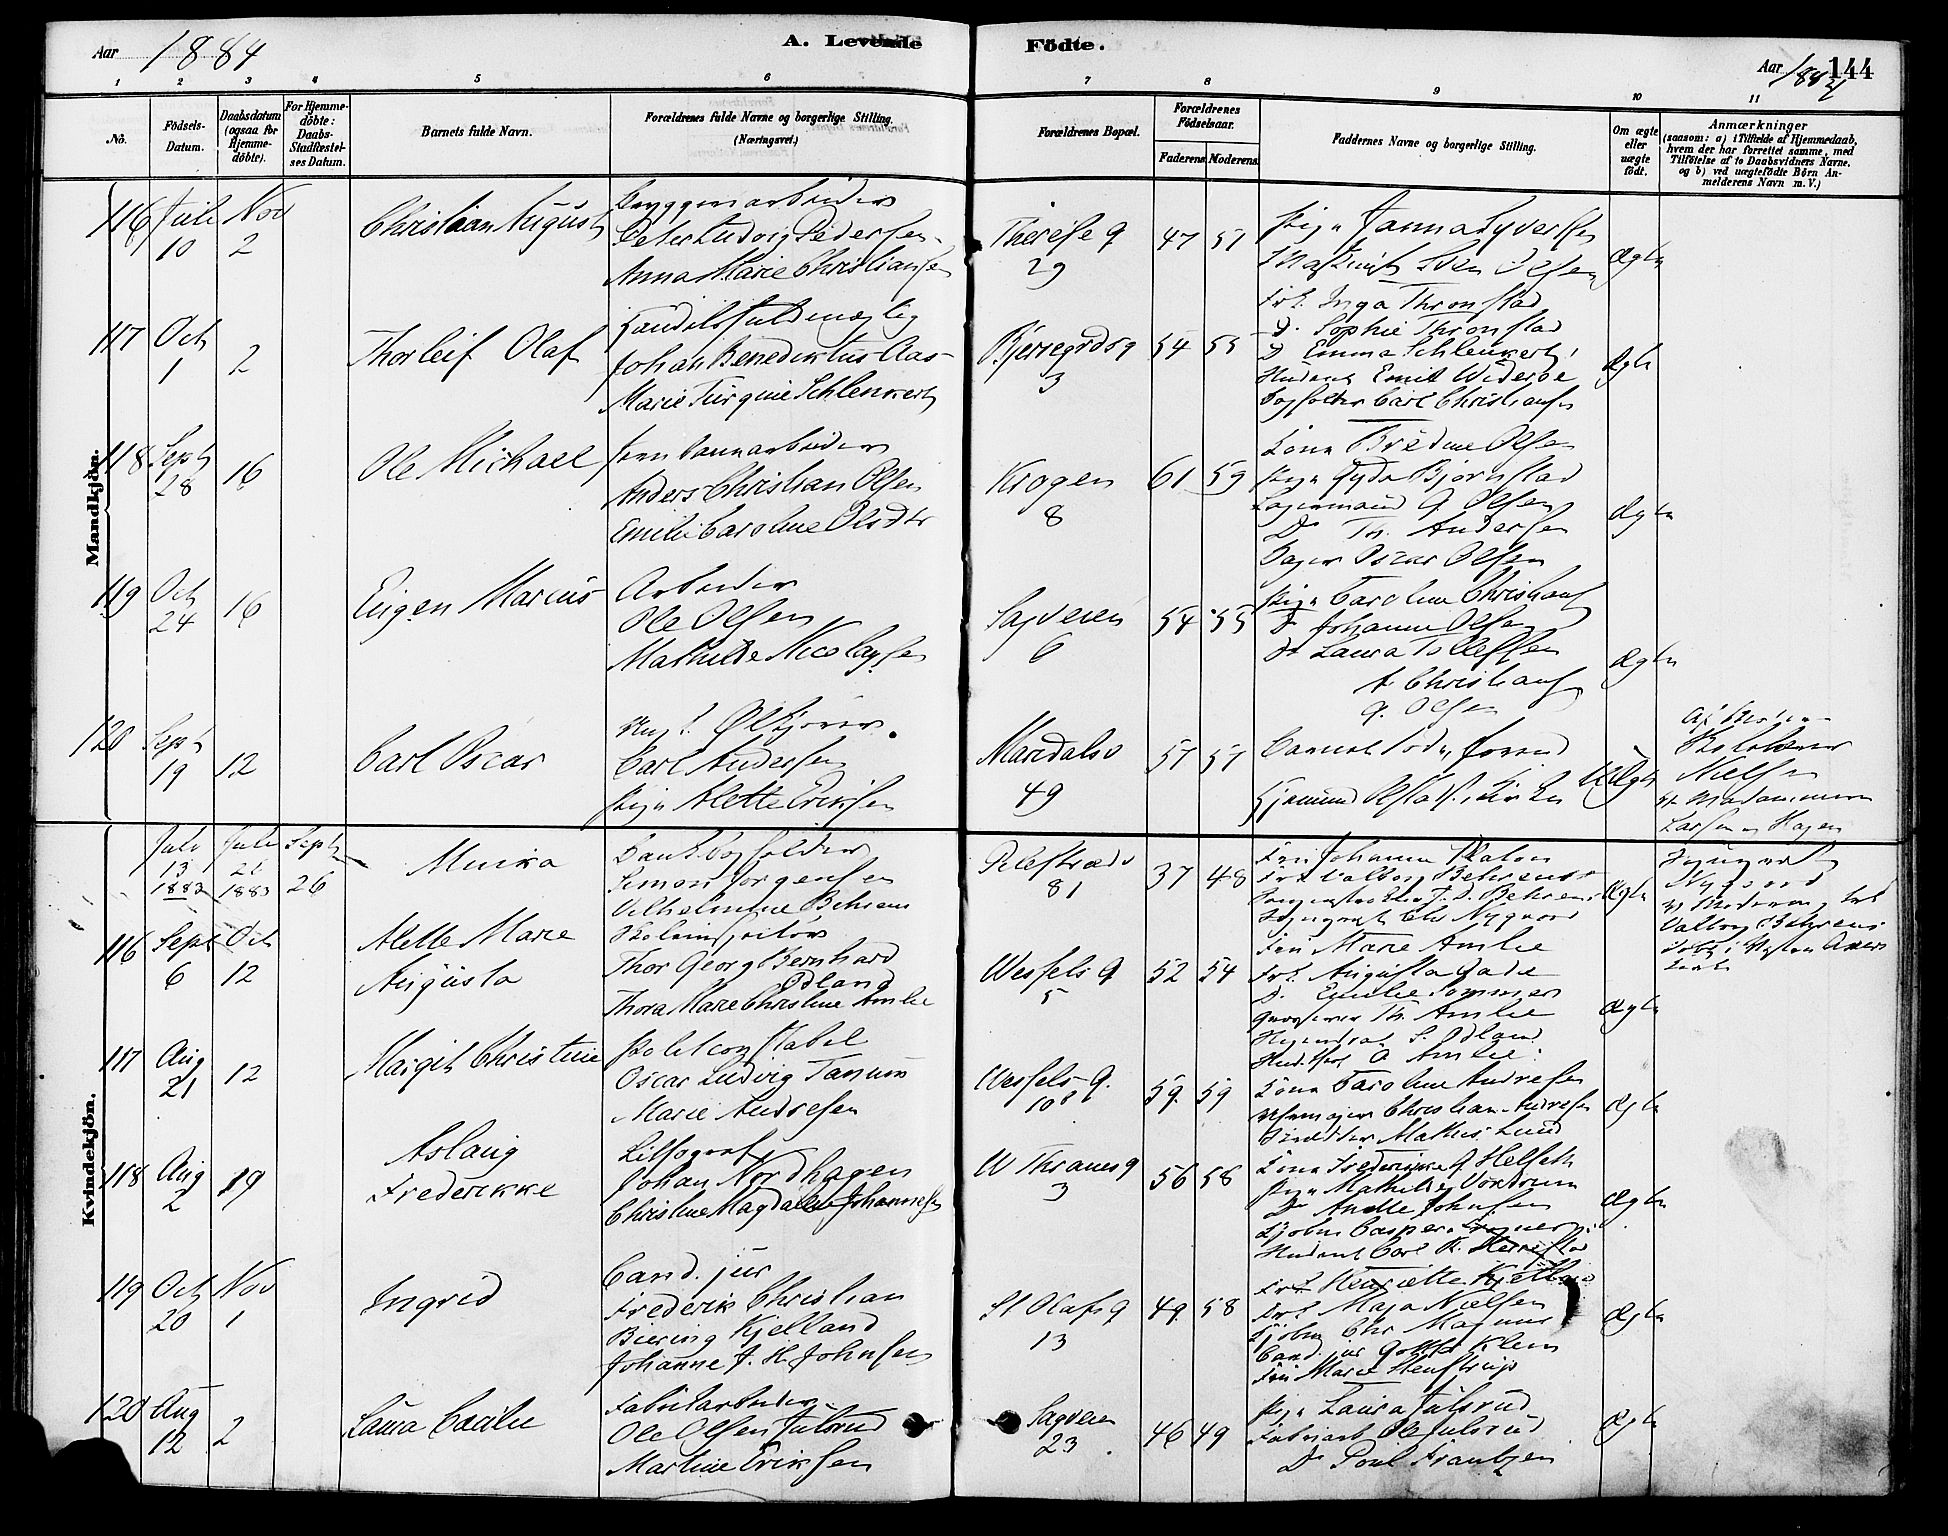 Aar 1884
A. Levende Födte.
Aar 1884 144
1 2 3 4 5 6 7 8 9 10 11
No.
Födsels-Datum.
Daabsdatum (ogsaa for Hjemme-döbte).
For Hjemme-döbte: Daabs-Stadfæstel-ses Datum.
Barnets fulde Navn.
Forældrenes fulde Navne og borgerlige Stilling. (Næringsvei.)
Forældrenes Bopæl.
Forældrenes Födselsaar.
Faderens. Moderens.
Faddernes Navne og borgerlige Stilling.
Om ægte eller uægte födt.
Anmærkninger
(saasom: a) i Tilfælde af Hjemmedaab,
hvem der har forrettet samme, med
Tilföielse af to Daabsvidners Navne,
og b) ved uægtefödte Börn An-
melderens Navn m. V.)
Mandkjön.
116 Juli 10 Nov 2 Christian August
Bryggeriarbeider
Peter Ludvig Pedersen
Anna Marie Christiansen
Therese g 29 47 57
Pige Janna Syversen
Maskinist Sven Olsen
Ægte
117 Oct 1 2 Thorleif Olaf
Handelsfuldmægtig
Johan Benediktus Aas
Marie Jürgine Schlenkert
Bjerregrdsg 3 54 55
Frk. Inga Thronstad
D. Sophie Thronstad
D Emma Schlenkert
Student Emil Wideröe
Bogholder Carl Christiansen
Ægte
118 Sept 28 16 Ole Michael
Jernbanearbeider
Anders Christian Olsen
Emilie Caroline Olsdtr
Krogen 8 61 59
Kona Bredine Olsen
Pige Gyda Bjørnstad
Lagermand G Olsen
D Th. Andersen
Bager Oscar Olsen
Ægte
119 Oct 24 16 Eugen Marius
Arbeider
Ole Olsen
Mathilde Nicolaysen
Sagveien 6 54 55
Pige Caroline Christians
D Johanne Olsen
D Laura Tollefsen
A Christiansen
G. Olsen
Ægte
120 Sept 19 12 Carl Oscar
Ungk. Ølkjører
Carl Andersen
Pige Alette Eriksen
Maridalsv 49 57 57
Uægte
Nielsen
Larsen og Hagen
Kvindekjön.
Juli 13 1883 Juli 21 1883 Sept 26 Muika
Bankbogholder
Simon Jørgensen
Vilhelmine Behrens
Pilestræde 81 37 48
Fru Johanne Platou
Frk Valborg Behrens
Ægte
Nygaard
Valborg Behrens
116 Sept 6 Oct 12 Alette Marie Augusta
Skoleinspektør
Thor Georg Bernhard Ødland
Thora Marie Christine Amlie
Wessels g 5 52 54
Fru Marie Amlie
Frk. Augusta Gade
D. Emilie Sommer
Th. Amlie
S. Ødland
A Amlie
Ægte
117 Aug 21 12 Margit Christine
Politconstabel
Oscar Ludvig Tanum
Marie Andresen
Wessels g. 10 59 59
Kona Caroline Andresen
Christian Andresen
Mathis Lund
Ægte
118 Aug 2 19 Aslaug Frederikke
Lithograf
Johan Nordhagen
Christine Magdalene Johannesen
W Thranes g 3 56 58
Kona Frederikke G Helseth
Pige Mathilde
D Anette Johnsen
Student Carl K.
Ægte
119 Oct 20 Nov 1 Ingrid
Cand. jur
Frederik Christian Biering Kjelland
Johanne J. H. Johnsen
St Olafs g 13 49 58
Frk Henriette Kjelland
Frk Maja Nielsen
Chr Magnus
Cand. jur Klem
Fru Marie Stenstrup
Ægte
120 Aug 12 2 Laura Cecilie
Fabrikarbeider
Ole Olsen Julsrud
Martine Eriksen
Sagveien 23 46 49
Pige Laura Julsrud
Fabrikarb Ole Julsrud
D Poul Frantzen
Ægte